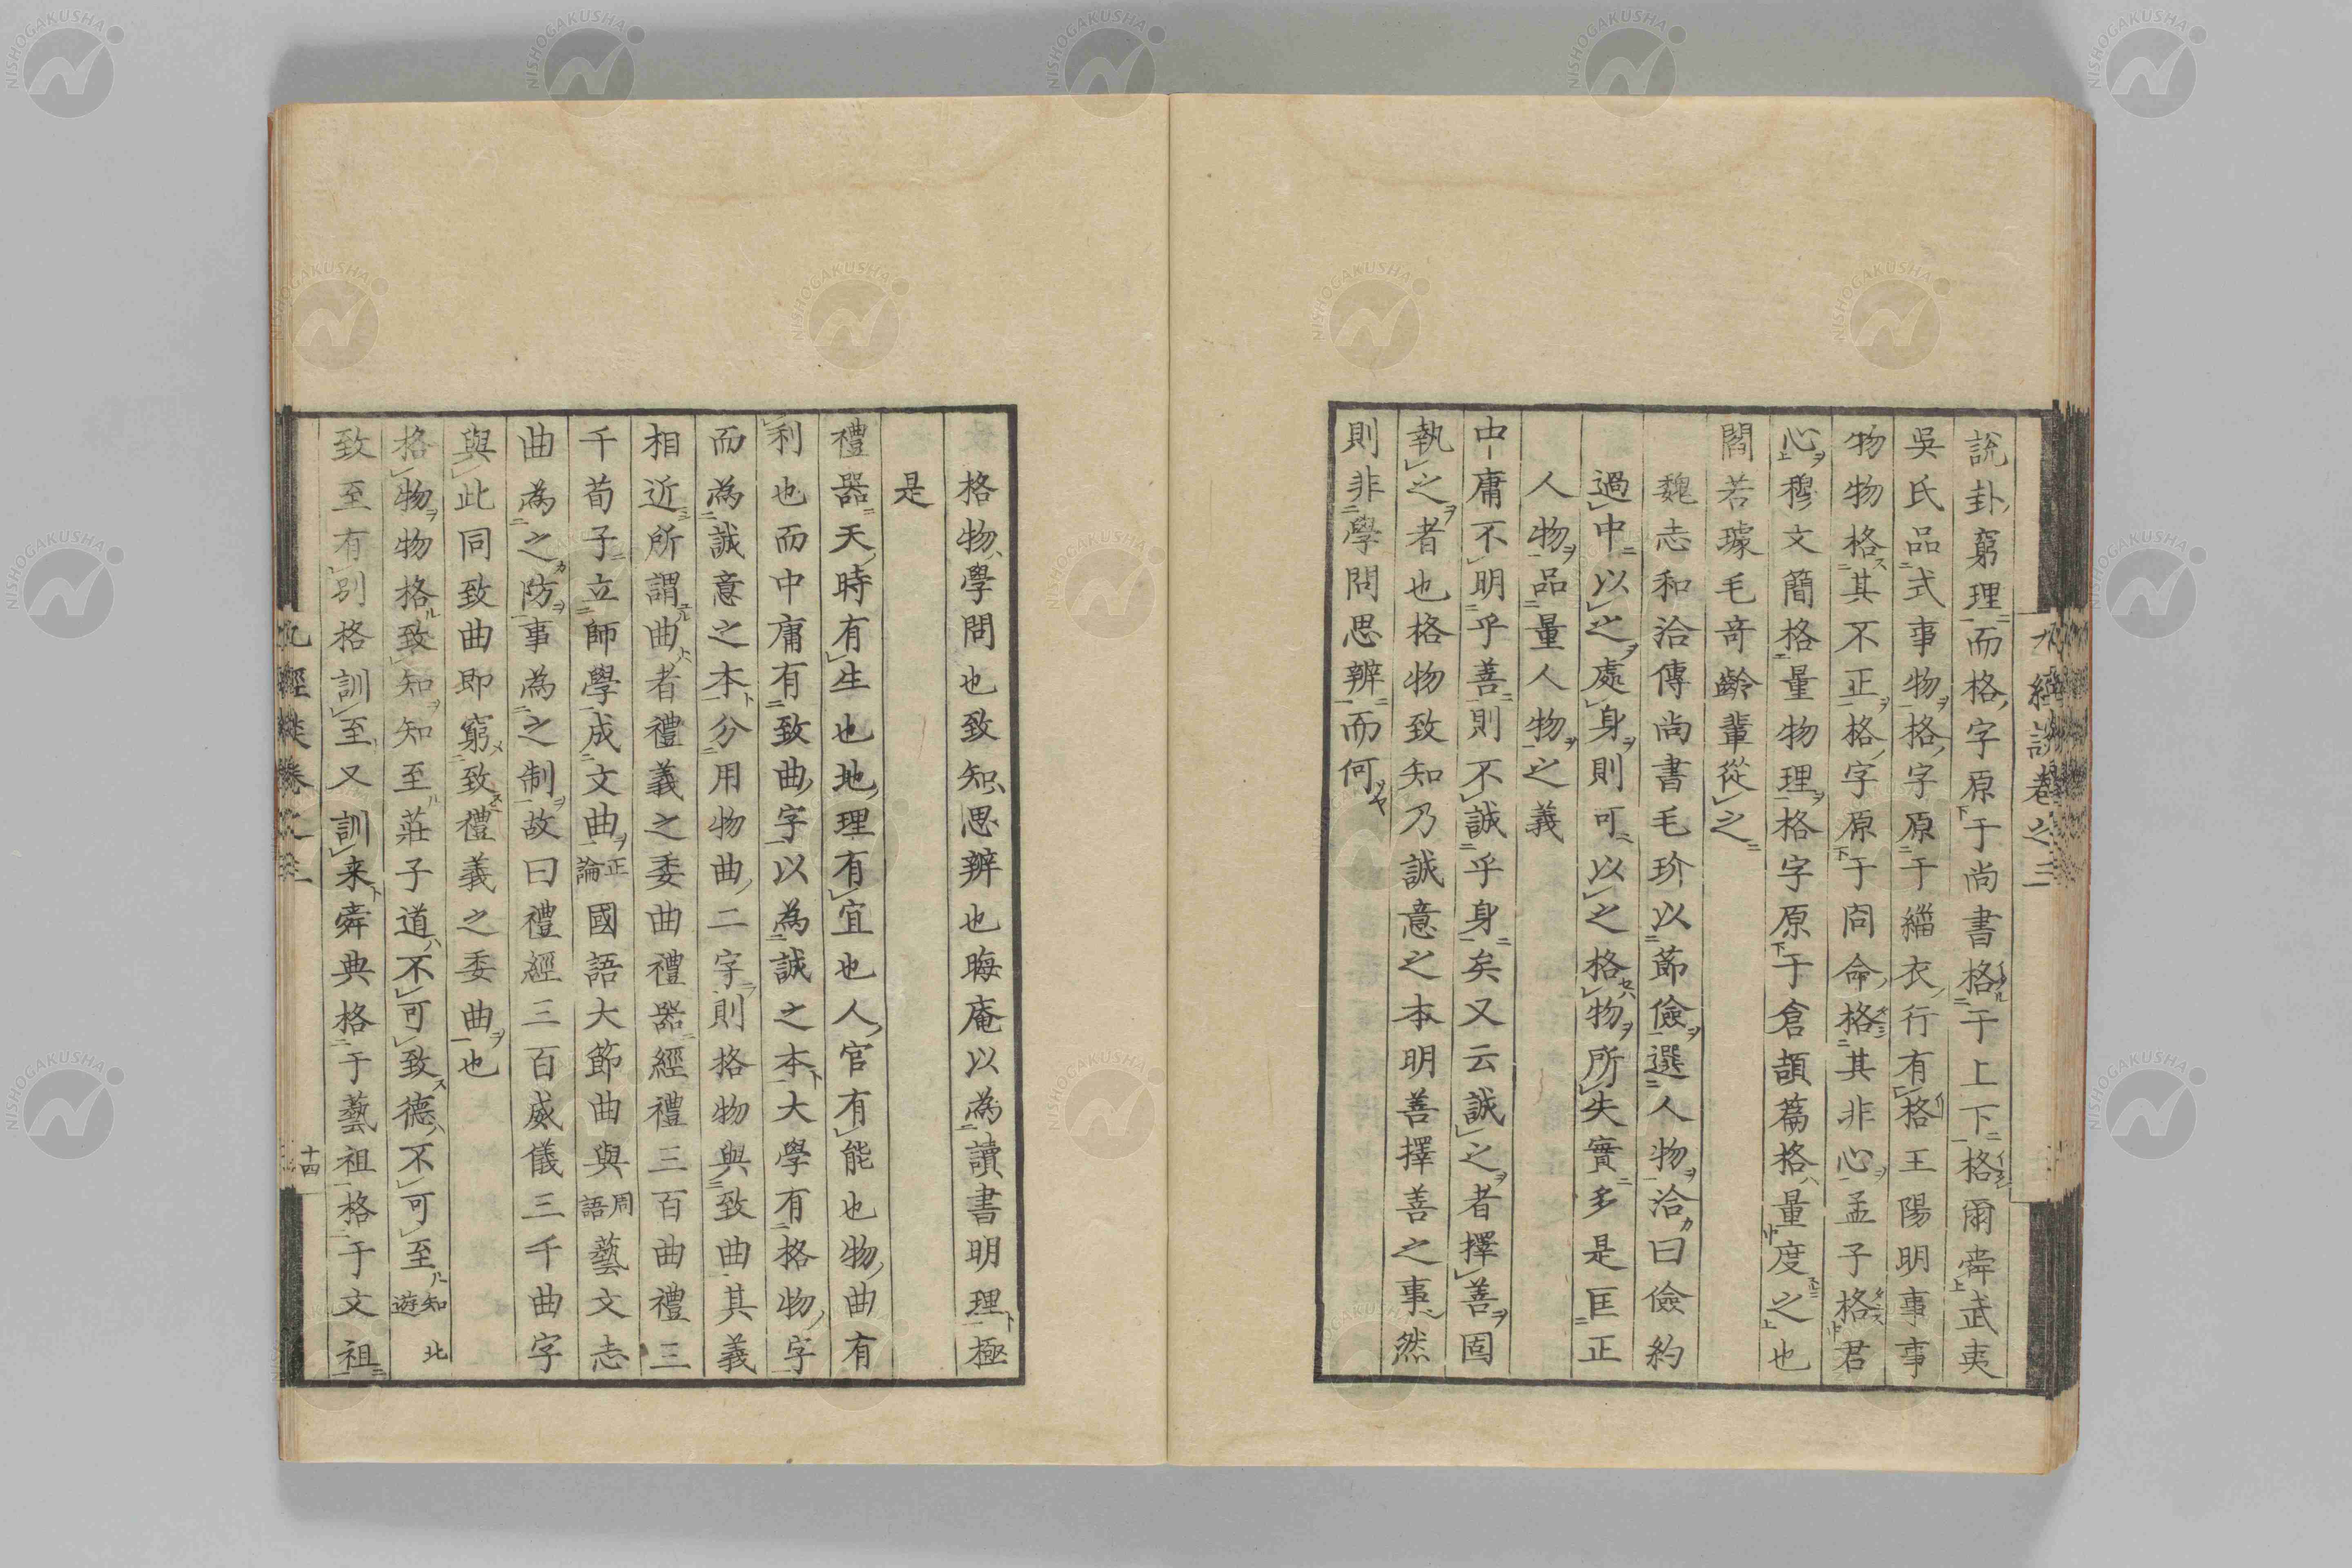 說卦窮理而格字原于尚書格于上下格爾舜武夷
吳氏品式事物格字原于緇衣行有格王陽明事事
物物格其不正格字原于冏命格其非心孟子格君
心穆文簡格量物理格字原于倉頡篇格量度之也
閻若璩毛奇齡輩從之
魏志和洽傳尚書毛玠以節儉選人物洽曰儉約
過中以之處身則可以之格物所失實多是匡正
人物品量人物之義
中庸不明乎善則不誠乎身矣又云誠之者擇善固
執之者也格物致知乃誠意之本明善擇善之事然
則非學問思辨而何
格物學問也致知思辨也晦庵以為讀書明理極
是
禮器天時有生也地理有宜也人官有能也物曲有
利也而中庸有致曲字以為誠之本大學有格物字
而為誠意之本分用物曲二字則格物與致曲其義
相近所謂曲者禮義之委曲禮器經禮三百曲禮三
千荀子立師學成文曲正論國語大節曲與周語藝文志
曲為之防事為之制故曰禮經三百威儀三千曲字
與此同致曲即窮致禮義之委曲也
格物物格致知知至莊子道不可致德不可至知北遊
致至有別格訓至又訓来舜典格于藝祖格于文祖
九經談卷之三
十四
NISHOGAKUSHA